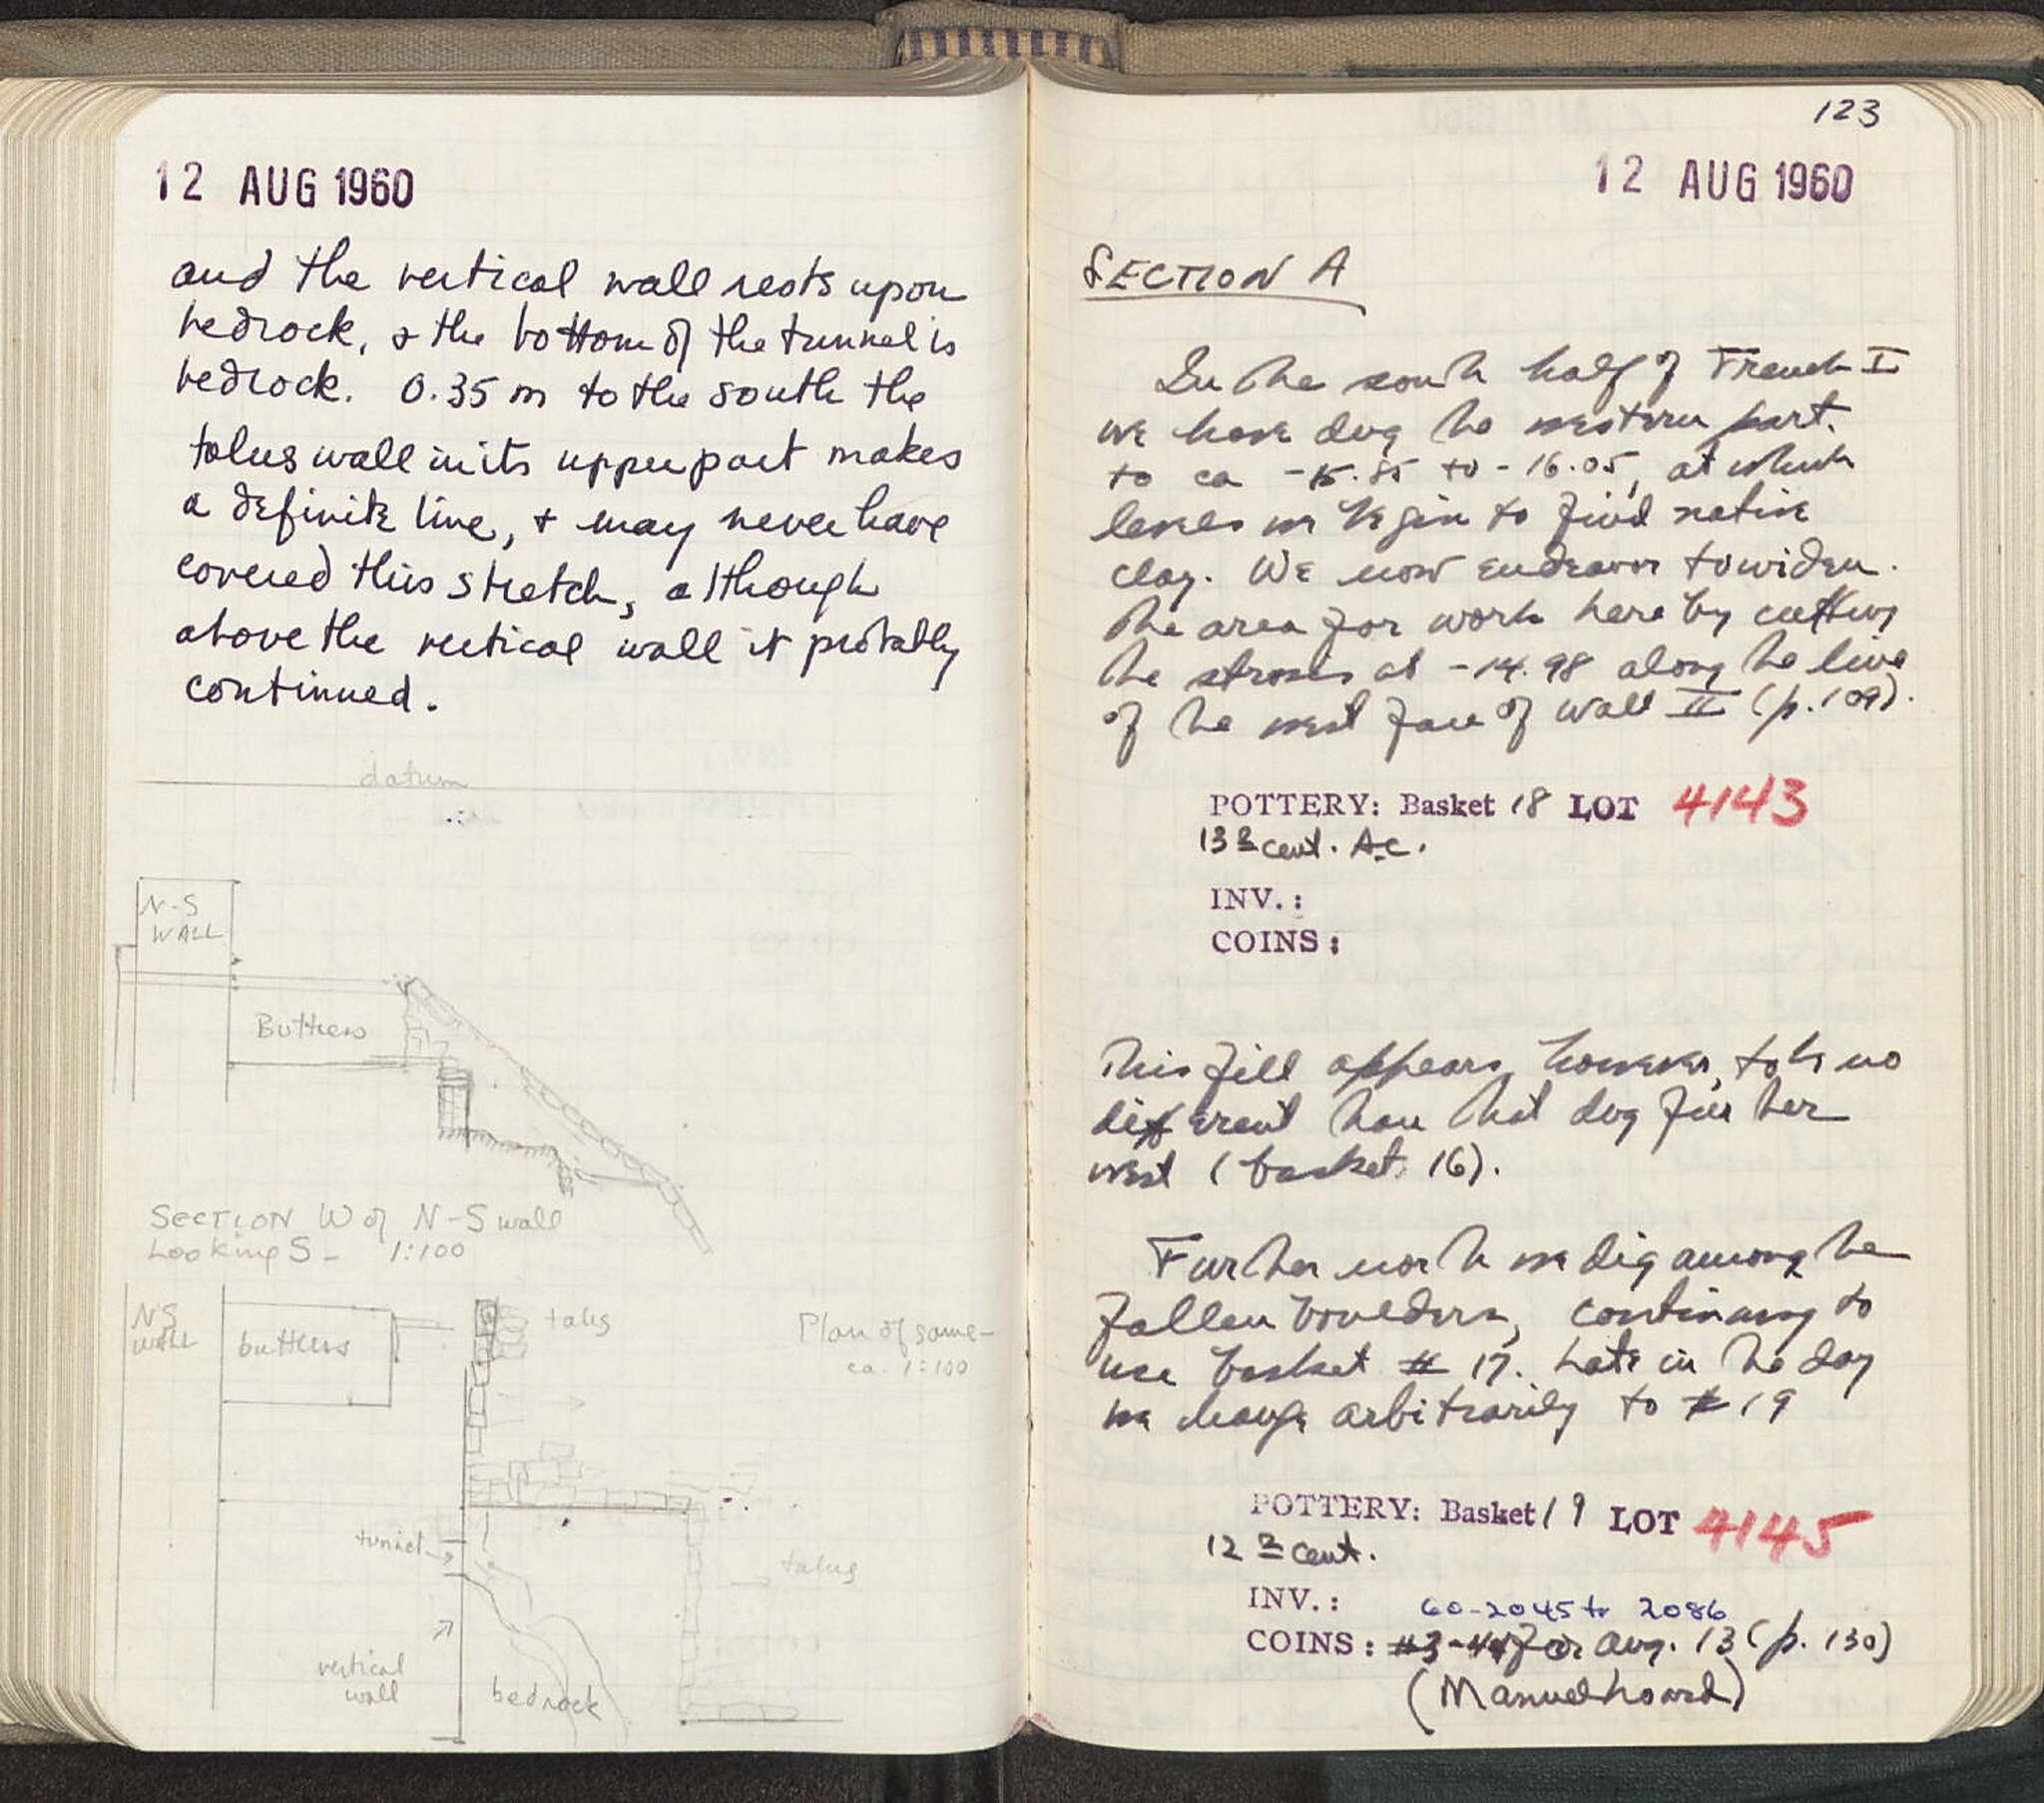 12 AUG 1960
and the vertical wall rests upon
bedrock, & the bottom of the tunnel is
bedrock. 0.35 m to the south the
talus wall in its upper part makes
a definite line, & may never have
covered this stretch, although
above the vertical wall it probably
continued.
datum
N-S
WALL
Buttress
SECTION W of N-S wall
Looking S - 1:100
NS
WALL
buttress
talus
Plan of same -
ca. 1:100
tunnel
talus
vertical
wall
bedrock
123
12 AUG 1960
SECTION A
In the south half of Trench I
we have dug the western part
to ca -15.85 to -16.05, at which
levels we begin to find native
clay. We now endeavor to widen
the area for work here by cutting
the stroses at -14.98 along the line
of the west face of wall II (p. 109).
POTTERY: Basket 18 LOT 4143
13th cent. A.C.
INV.:
COINS:
This fill appears, however, to be no
different than that dug further
west (basket 16).
Further north we dig among the
fallen boulders, continuing to
use basket # 17. Late in the day
we change arbitrarily to # 19
POTTERY: Basket 19 LOT 4145
12th cent.
INV.: 60-2045 to 2086
COINS: #3-44 for Aug. 13 (p. 130)
(Manuel hoard)